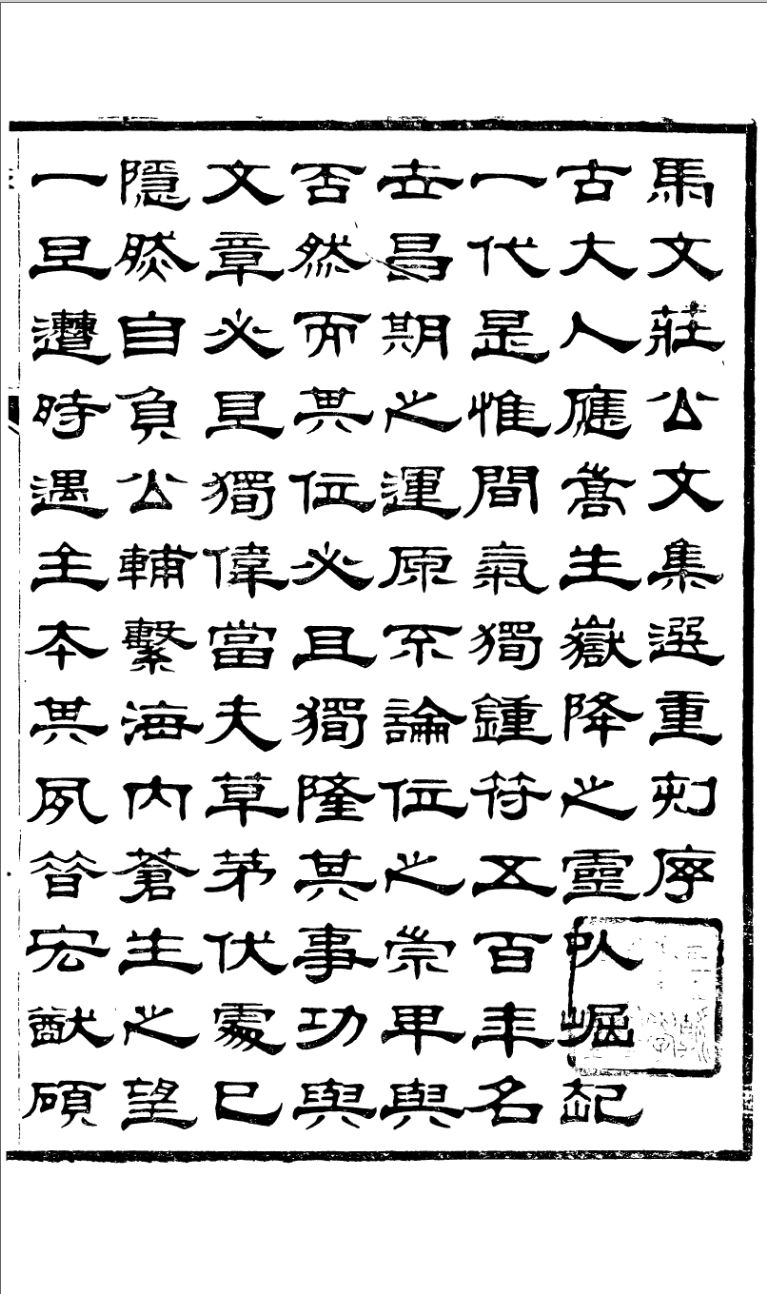 馬文莊公文集選重刻序
古大人應嵩生嶽降之靈以崛起
一代是惟間氣獨鍾符五百年名
世昌期之運原不論位之崇卑與
否然而其位必且獨隆其事功與
文章必見獨偉當夫草茅伏處已
隱然自負公輔繫海內蒼生之望
一旦遭時遇主本其夙昔宏猷碩